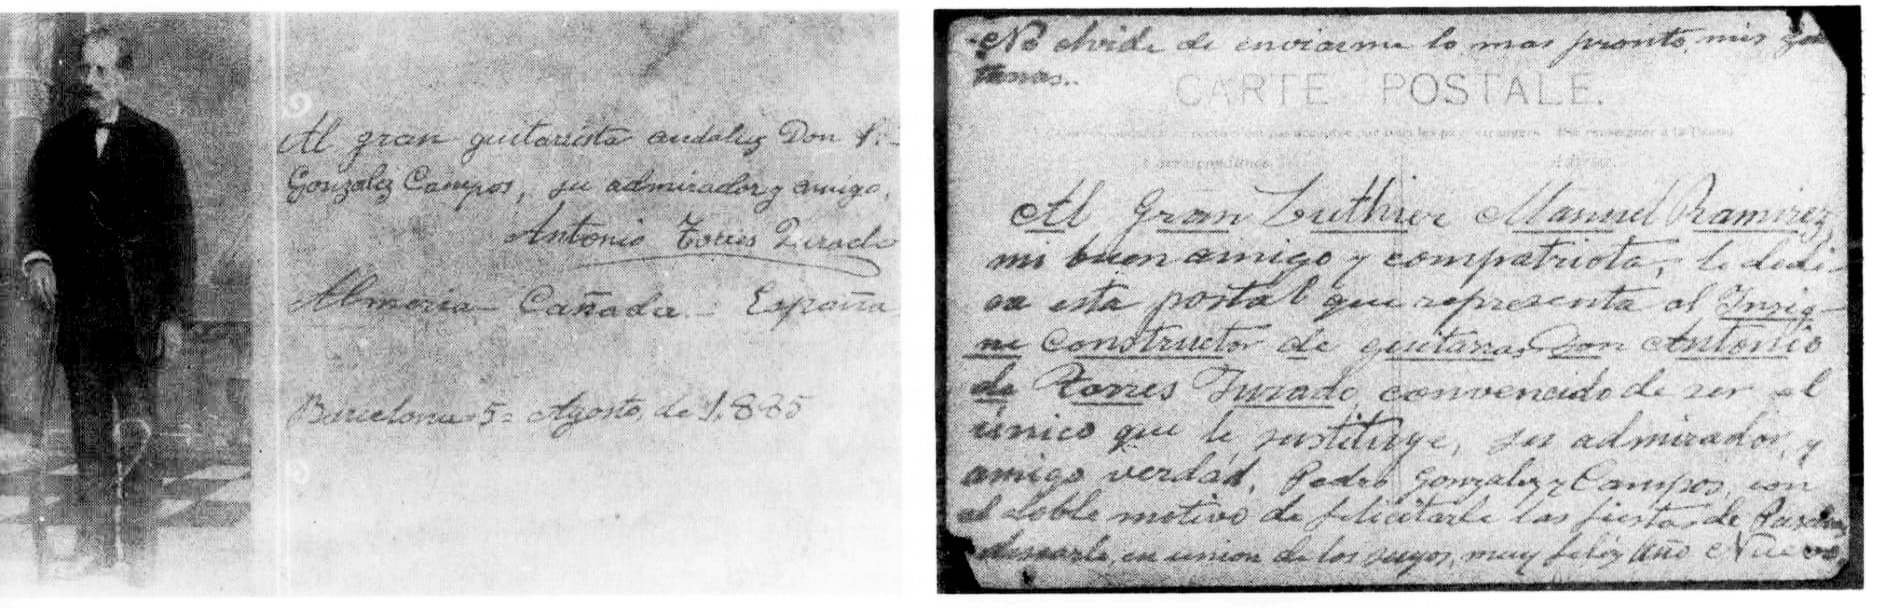 Al gran guitarrista andaluz Don P.
Gonzalez Campos, su admirador y amigo,
Antonio Torres Jurado
Almeria - Cañada. - España
Barcelona 5 = Agosto, de 1.885
No olvide de enviarme lo mas pronto, mis gui
tarras..
CARTE POSTALE.
Correspondance
Adresse
Al Gran Luthier Manuel Ramirez,
mi buen amigo y compatriota, le dedi-
ca esta postal que representa al Insig-
ne Constructor de guitarras Don Antonio
de Torres Jurado, convencido de ser el
único que le sustituye, su admirador, y
amigo verdad, Pedro Gonzalez y Campos, con
el doble motivo de felicitarle las fiestas de Pascua
desearle, en union de los suyos, muy feliz Año Nuevo